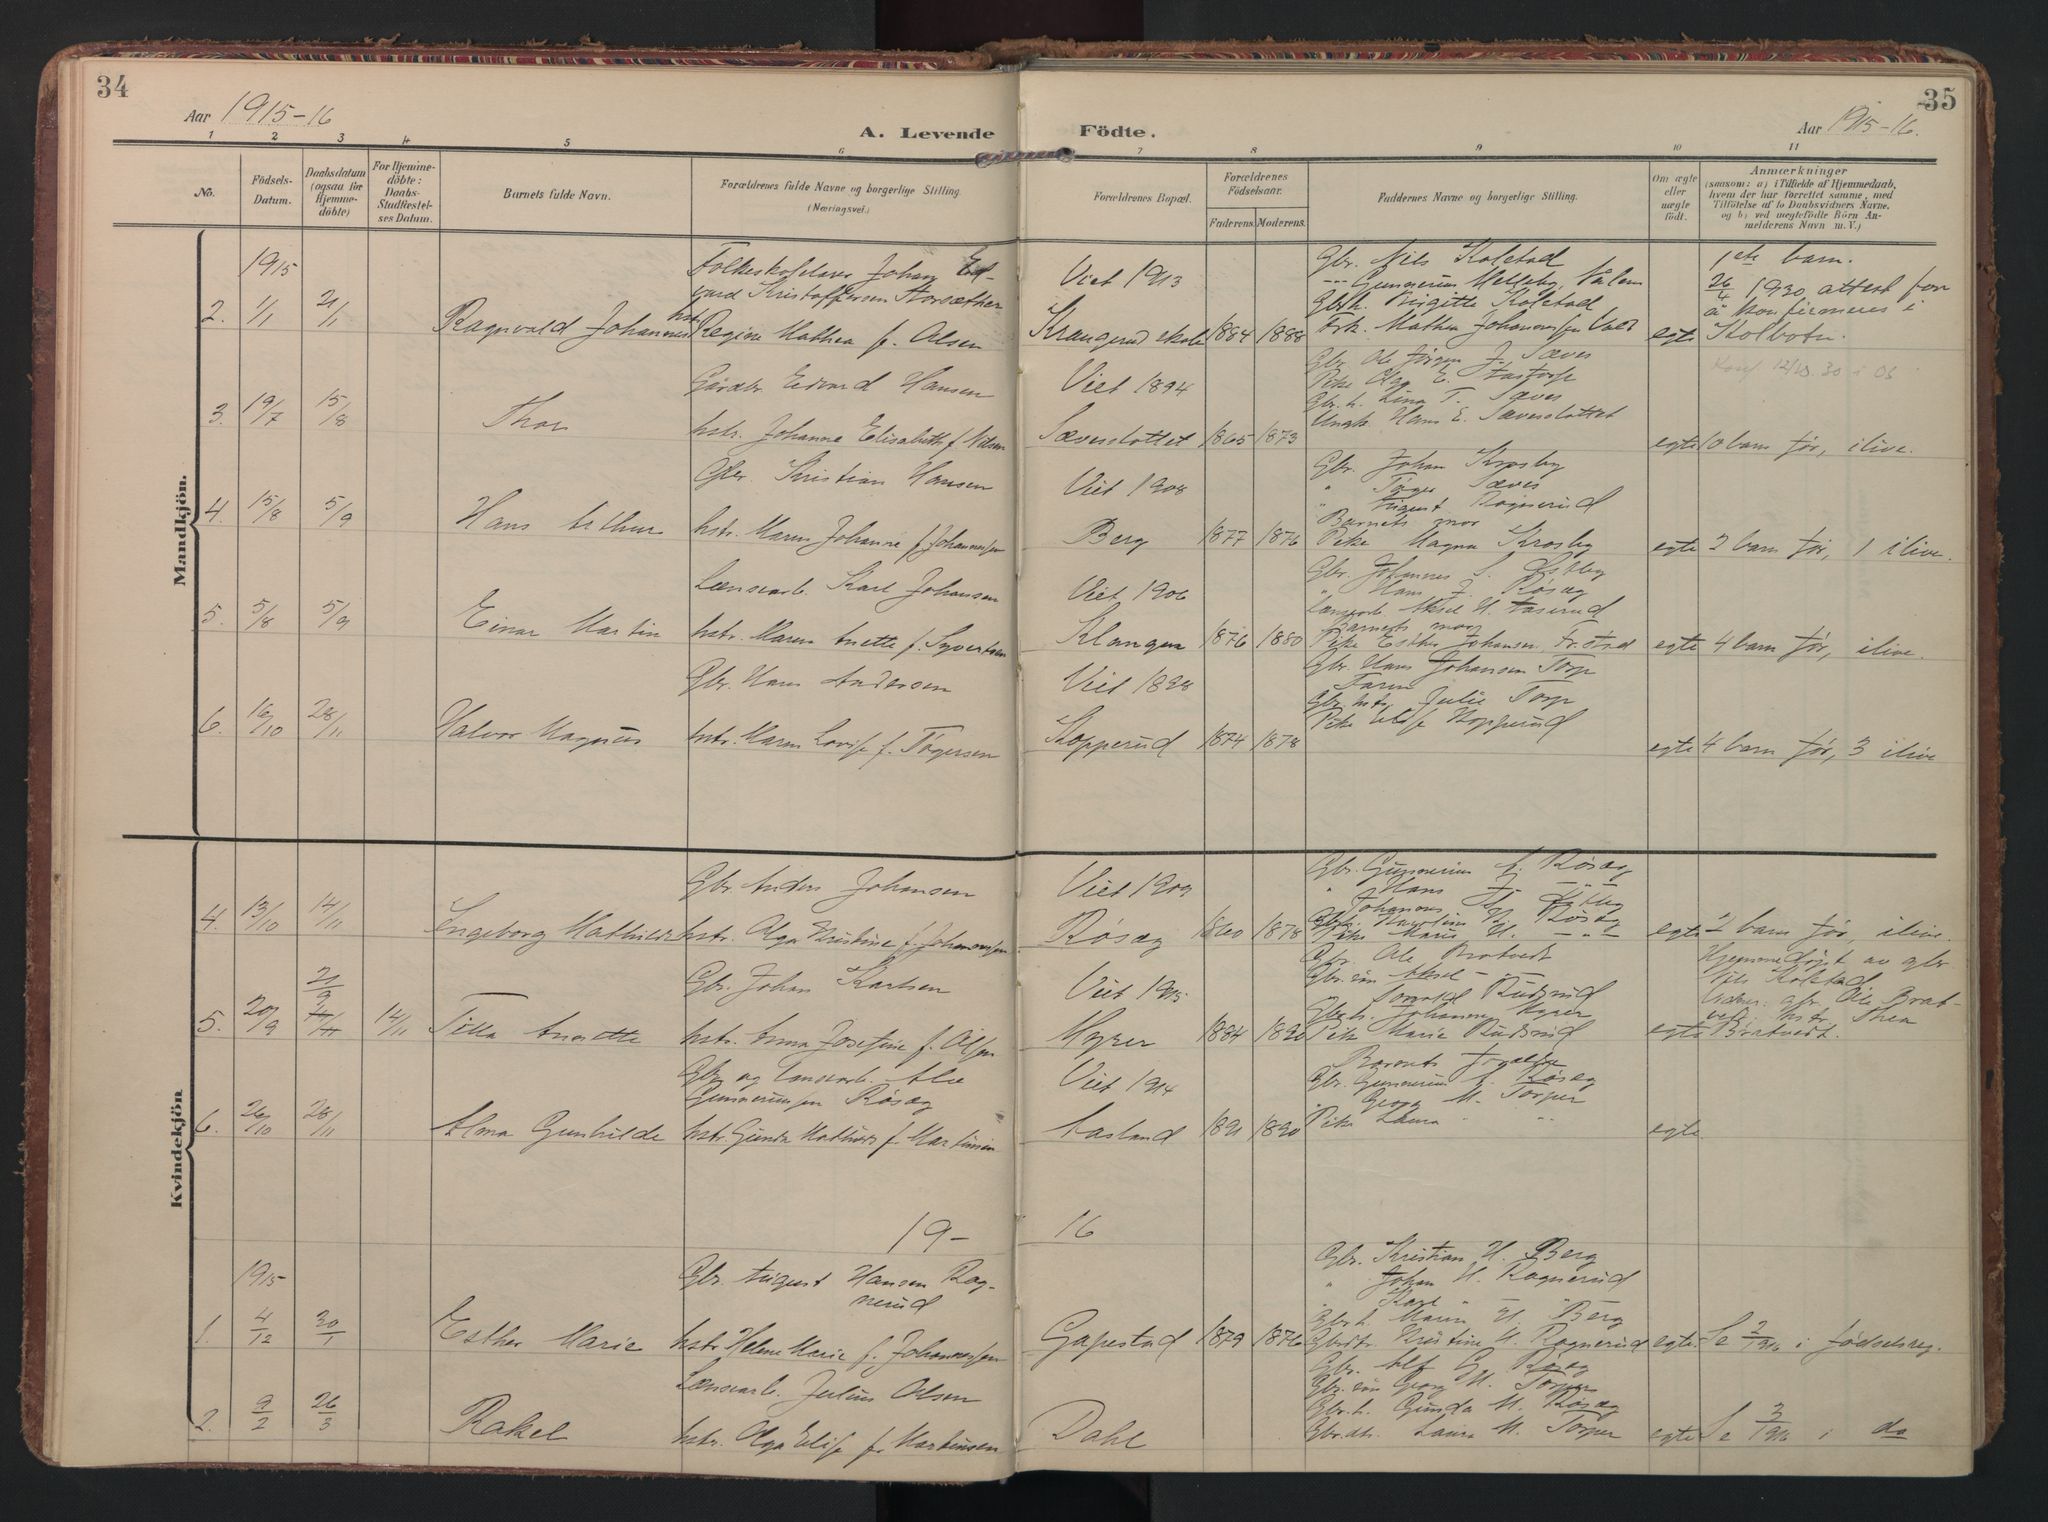 34
Aar 1915-16
A. Levende Födte.
Aar 1915-16.
35
1 2 3 4 5 6 7 8 9 10 11
No.
Födsels-
Datum.
Daabsdatum
(ogsaa for
Hjemme-
döbte)
For Hjemme-
döbte:
Daabs-
Stadfæstel-
ses Datum.
Barnets fulde Navn.
Forældrenes fulde Navne og borgerlige Stilling.
(Næringsvei.)
Forældrenes Bopæl.
Forældrenes
Födselsaar.
Faderens. Moderens.
Faddernes Navne og borgerlige Stilling.
Om ægte
eller
uægte
födt.
Anmærkninger
(saasom: a) i Tilfælde af Hjemmedaab,
hvem der har forrettet samme, med
Tilföielse af to Daabsvidners Navne,
og b) ved uægtefödte Börn An-
melderens Navn m. V.)
Mandkjön.
1915
2. 1/1 21/1 Ragnvald Johannes
Folkeskolelærer Johan Ed-
vard Kristoffersen Storsæther
hstr. Regine Mathea f. Olsen
Viet 1913
Krangerud skole 1884 1888
Gbr. Nils Kolstad
Gbrh. Birgitte Kolstad
Frk. Mathea Johannessen
egte
1ste barn.
26/4 1930 attest for
å konfirmeres i
Kolbotn.
3. 19/7 15/8 Thor
Gårdbr. Edvard Hansen
hstr. Johanne Elisabeth f. Nilsen
Viet 1894
Sæverslottet 1865 1873
Gbr. Ole Jørgen J. Sæves
Pike Olga E.
Gbr.h. Lina T. Sæves
Ungk. Hans E. Sæverslottet
egte 10 barn før, ilive.
4. 15/8 5/9 Hans Arthur
Gbr. Kristian Hansen
hstr. Maren Johanne f. Johannessen
Viet 1908
Berg 1877 1876
Gbr. Johan Krosby
" Sæves
" August Ragnerud
Barnets mor
Pike Magna Krosby
egte 2 barn før, 1 ilive.
5. 5/8 5/9 Einar Martin
Lænsearb. Karl Johansen
hstr. Maren Anette f. Syvertsen
Viet 1906
Klangen 1876 1880
Gbr. Johannes S. Østby
" Hans J. Røsæg
Lænsearb. Aksel H. Aaserud
Barnets mor
Pike Esther Johansen
egte 4 barn før, ilive.
6. 16/10 28/11 Halvor Magnus
Gbr. Hans Andersen
hstr. Maren Lovise f. Tøgersen
Viet 1898
Kopperud 1874 1878
Gbr. Hans Johansen Torp
Faren
Gbr. hstr. Julie Torp
Pike Kopperud
egte 4 barn før, 3 ilive
Kvindekjön
4. 13/10 14/11 Ingeborg Mathilde
Gbr. Anders Johansen
hstr. Olga Kristine f. Johannessen
Viet 1909
Røsæg 1860 1878
Gbr. Gunnerius A. Røsæg
" Hans J. "
Johannes S. Østby
Pike Marie H. "
egte 2 barn før, ilive.
5. 20/9 21/9 14/11 Tilla Anette
Gbr. Johan Karlsen
hstr. Anna Josefine f. Olsen
Viet 1915
Myrer 1884 1890
Gbr. Ole Bratvedt
Gbr.søn Aksel
Rudsrud
Gbr.h. Johanne Myrer
Pike Marie Rudsrud
egte
Hjemmedøpt av gbr.
Nils Kolstad
Vidner: gbr. Ole Brat-
vedt, hstr. Thea
Bratvedt.
6. 26/10 28/11 Alma Gunhilde
Gbr. og lænsearb. Alf
Gunneriussen Røsæg
hstr. Gunda Mathilde f. Martinsen
Viet 1914
Aasland 1891 1890
Barnets forældre
Gbr. Gunnerius A. Røsæg
" Georg M. Torper
Pike Laura " "
egte
19- 16
1915
1. 4/12 30/1 Esther Marie
Gbr. August Hansen Rag-
nerud
hstr. Helene Marie f. Johannessen
Gapestad 1879 1876
Gbr. Kristian H. Berg
" Johan H. Ragnerud
" Karl " "
Gbrh. Maren H. Berg
Gbrdtr. Kristine H. Ragnerud
egte. Se 2/1916 i fødselsreg.
2. 9/2 26/3 Rakel
Lænsearb. Julius Olsen
hstr. Olga Elise f. Martinsen
Dahl
Gbr. Alf G. Røsæg
Gbr. søn Georg M. Torper
Gbr.h. Gunda M. Røsæg
Gbr.dtr. Laura M. Torper
egte Se 3/1916 i do